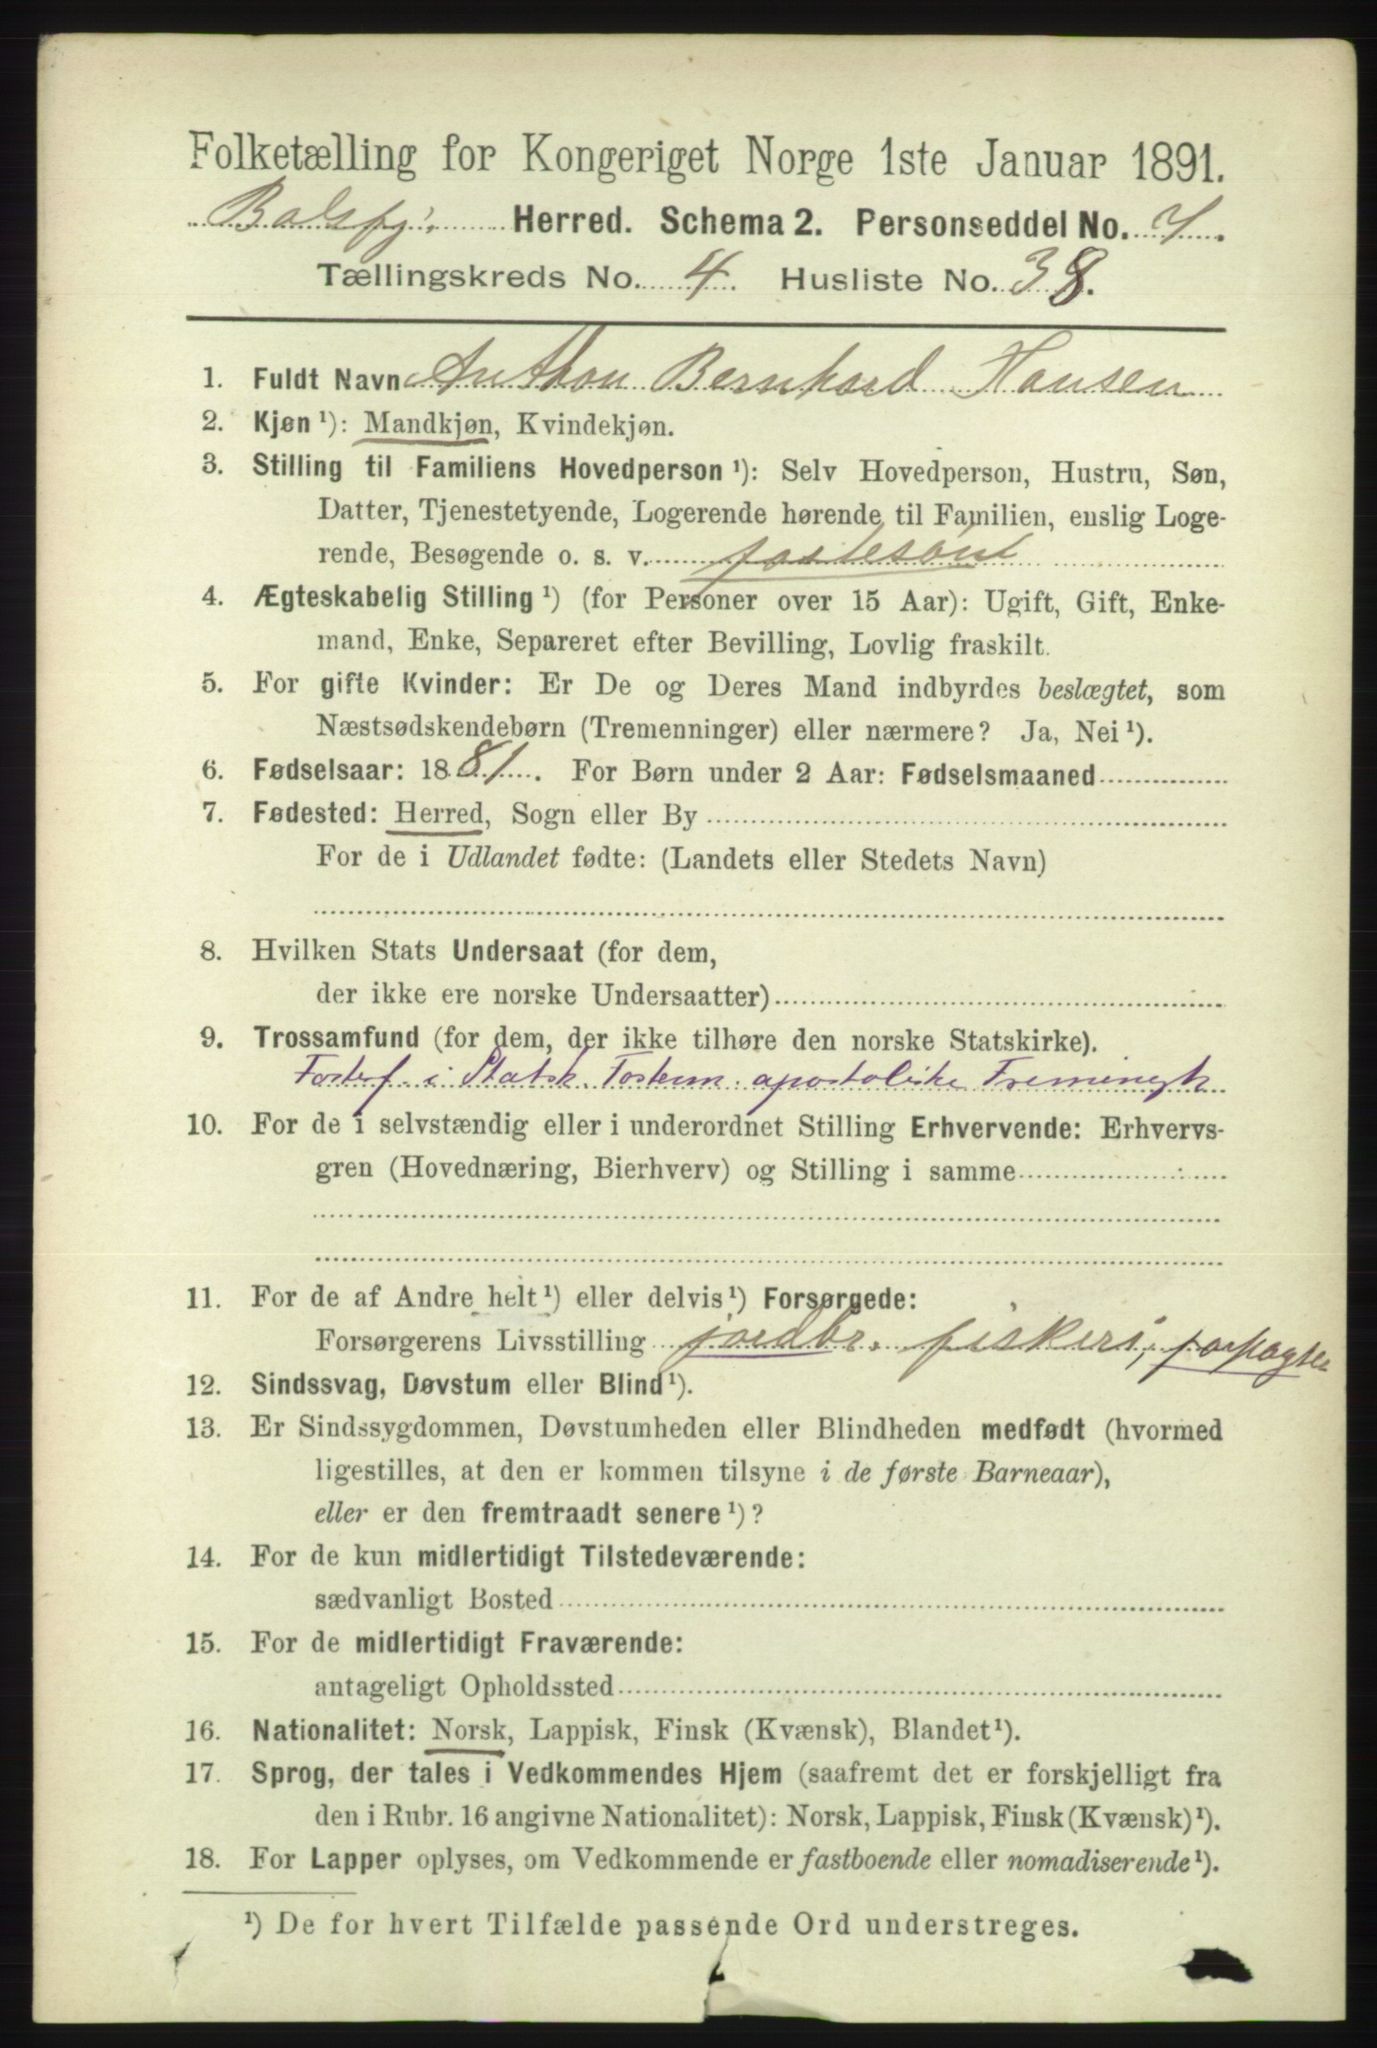 Folketælling for Kongeriget Norge 1ste Januar 1891.
Balsfj. Herred. Schema 2. Personseddel No. 7.
Tællingskreds No. 4. Husliste No. 38.
1. Fuldt Navn Anthon Bernhard Hansen
2. Kjøn ¹): Mandkjøn, Kvindekjøn.
3. Stilling til Familiens Hovedperson ¹): Selv Hovedperson, Hustru, Søn,
Datter, Tjenestetyende, Logerende hørende til Familien, enslig Loge-
rende, Besøgende o. s. v.
4. Ægteskabelig Stilling ¹) (for Personer over 15 Aar): Ugift, Gift, Enke-
mand, Enke, Separeret efter Bevilling, Lovlig fraskilt.
5. For gifte Kvinder: Er De og Deres Mand indbyrdes beslægtet, som
Næstsødskendebørn (Tremenninger) eller nærmere? Ja, Nei ¹).
6. Fødselsaar: 1881. For Børn under 2 Aar: Fødselsmaaned
7. Fødested: Herred, Sogn eller By
For de i Udlandet fødte: (Landets eller Stedets Navn)
8. Hvilken Stats Undersaat (for dem,
der ikke ere norske Undersaatter)
9. Trossamfund (for dem, der ikke tilhøre den norske Statskirke).
Fosterf. i Statsk. Fosterm. apostoliske Fremenigh
10. For de i selvstændig eller i underordnet Stilling Erhvervende: Erhvervs-
gren (Hovednæring, Bierhverv) og Stilling i samme
11. For de af Andre helt ¹) eller delvis ¹) Forsørgede:
Forsørgerens Livsstilling jordbr. fiskeri, forpagter
12. Sindssvag, Døvstum eller Blind ¹).
13. Er Sindssygdommen, Døvstumheden eller Blindheden medfødt (hvormed
ligestilles, at den er kommen tilsyne i de første Barneaar),
eller er den fremtraadt senere ¹)?
14. For de kun midlertidigt Tilstedeværende:
sædvanligt Bosted
15. For de midlertidigt Fraværende:
antageligt Opholdssted
16. Nationalitet: Norsk, Lappisk, Finsk (Kvænsk), Blandet ¹).
17. Sprog, der tales i Vedkommendes Hjem (saafremt det er forskjelligt fra
den i Rubr. 16 angivne Nationalitet): Norsk, Lappisk, Finsk (Kvænsk) ¹).
18. For Lapper oplyses, om Vedkommende er fastboende eller nomadiserende ¹).
¹) De for hvert Tilfælde passende Ord understreges.